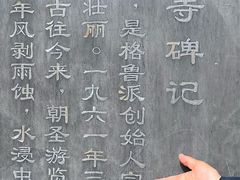 寺碑记
，是格鲁派创始人宗
壮丽。一九六一年三
古往今来，朝圣游览
年风剥雨蚀，水浸虫